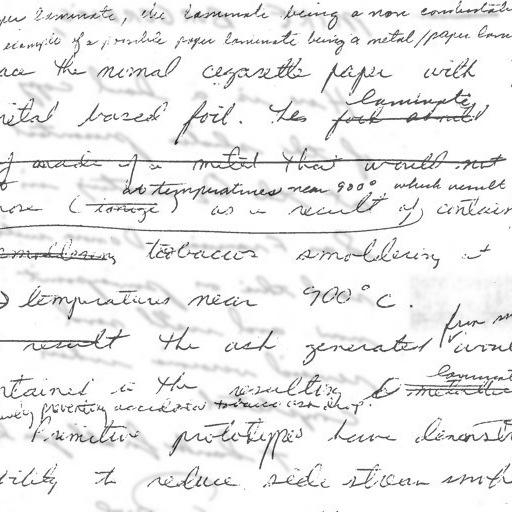 laminate, the laminate being a non combustable
example of a possible paper laminate being a metal/paper lam
ace the normal cigarette paper with
metal based foil. The laminate foil should
if made of a metal that would not
at temperatures near 900°, which result
(ionize) as a result of) contain
smoldering tobaccos smoldering at
temperatures near 900°C.
result the ash generated from would
ntained in the resulting laminate metallic
preventing accidental tobacco ash drop.
Primitive prototypes have demonst
bility to reduce side stream smok